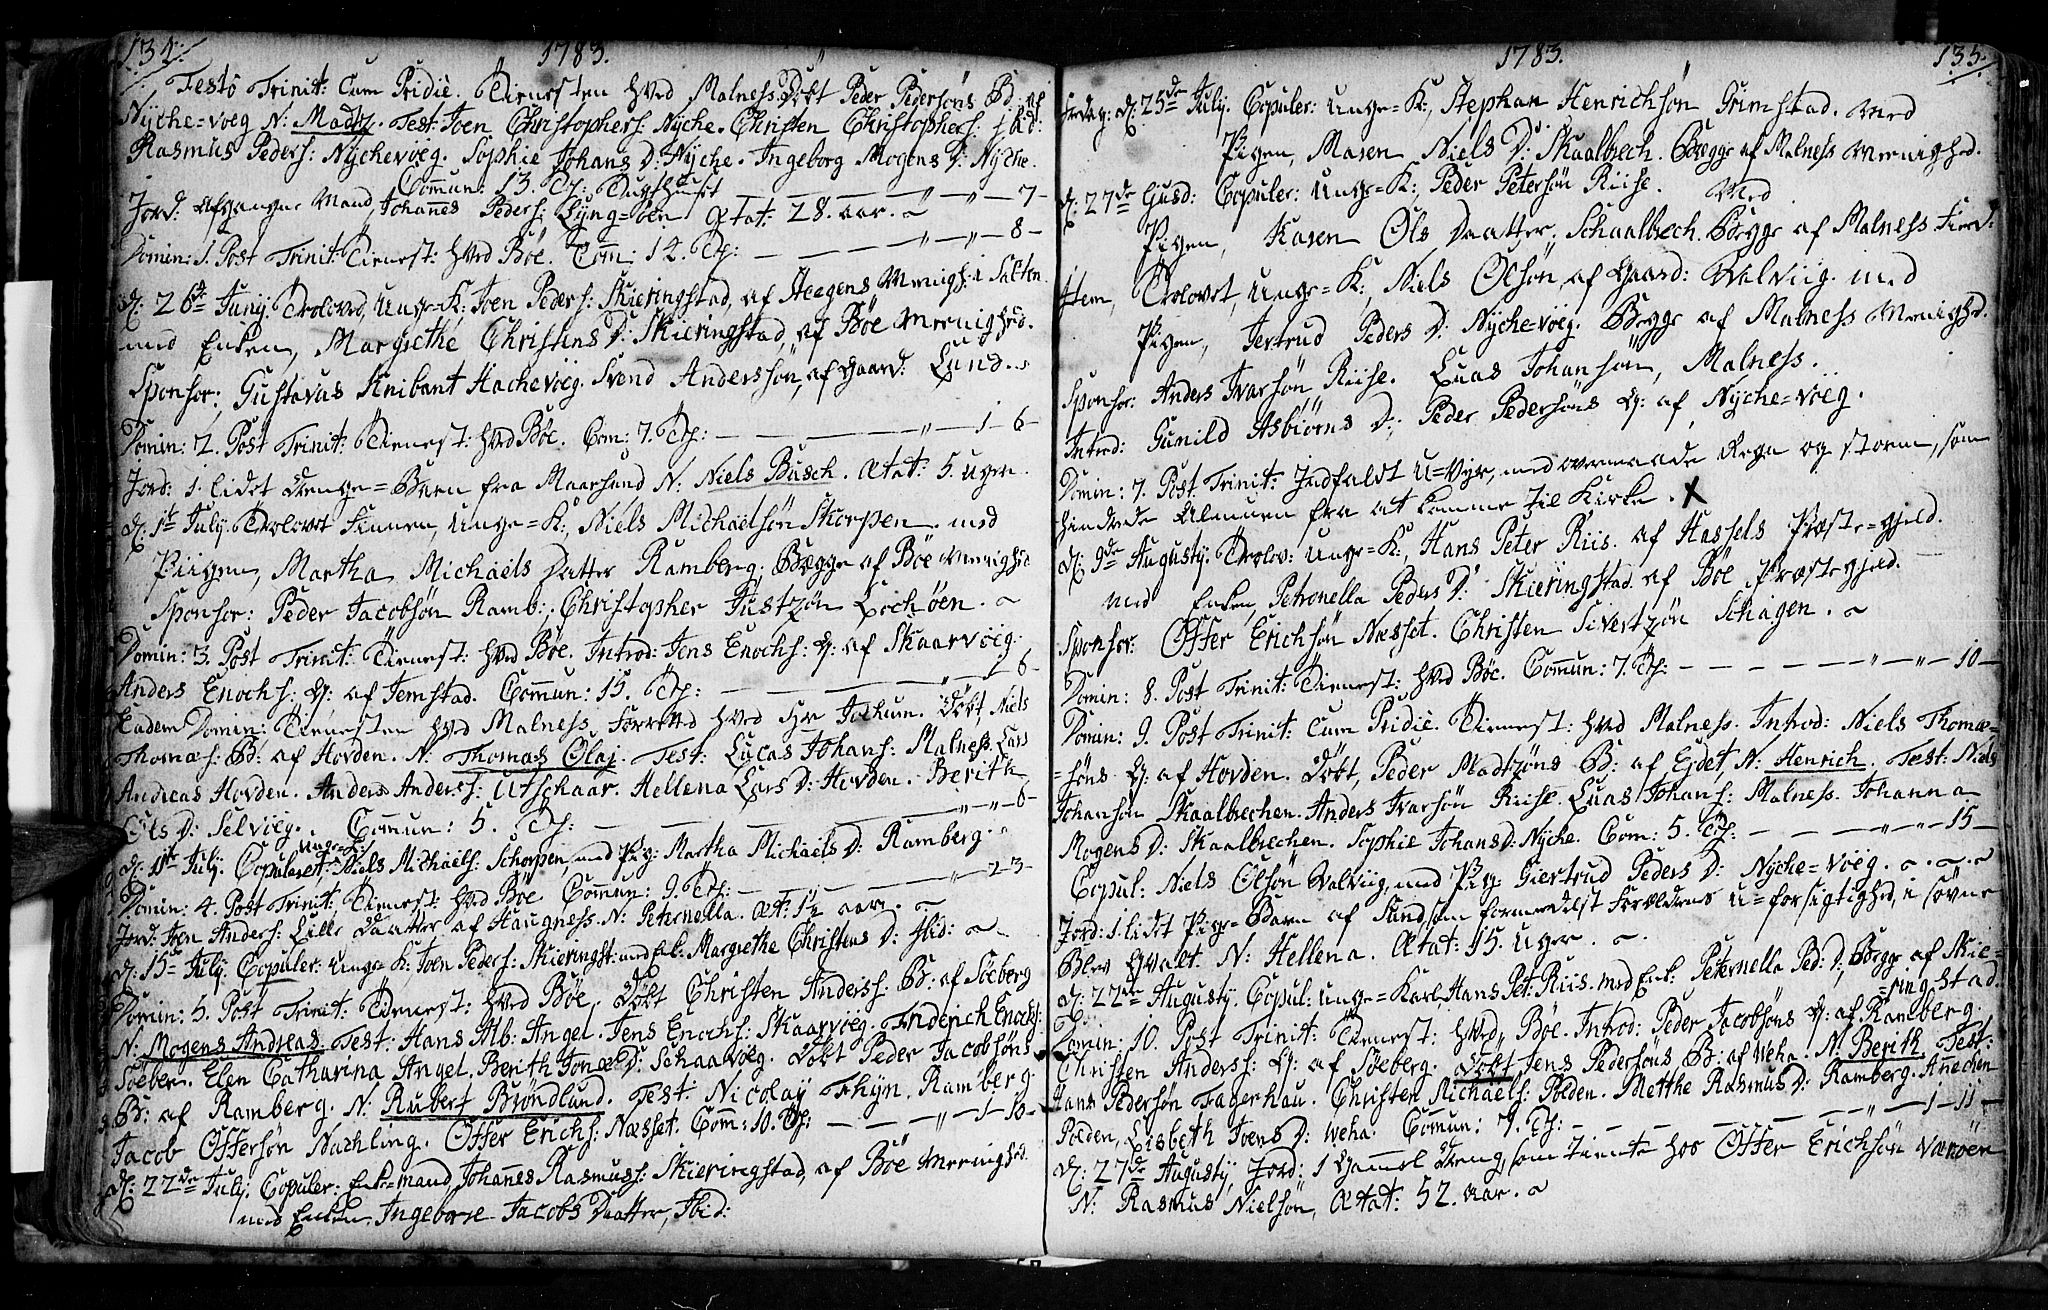 134.
1783.
Festo Trinit: Cum Pridie. Tienesten hved Malness. Døbt Peder Pedersøns B: af
Nyche=voeg N: Madtz. Test: Joen Christophers: Nyche. Christen Christophers: ibid:
Rasmus Peders: Nychevoeg. Sophie Johans D: Nyche. Ingeborg Mogens D: Nyche.
Commun: 13. Tugthuset
Jord: Mand, Johannes Peders: Lyng=øen Ætat: 28. aar. ~ — " — " — 7 —
Domin: 1. Post Trinit: Tienest: hved Böe. Com: 14. — — " — " — 8 —
d: 26de Juny. Troloved, Unge=K: Joen Peders: Skieringstad, af Steegens Menigh: i Salten
med Enken, Margrethe Christens D: Skieringstad, af Böe Menighed.
Sponsor: Gustavus Knibant Hachevoeg. Svend Anderssøn, af Gaard: Lund.
Domin: 2. Post Trinit: Tienest: hved Böe. Com: 7. — — — " — 1 — 6 —
Jord: 1. lidet Drenge=Barn fra Maarsund N: Niels Busch. Ætat: 5. uger.
d: 1te July. Trolovet Finnen, Unge=K: Niels Michaelsøn Skorpen. med
Piigen, Martha Michaels Datter Ramberg. Begge af Böe Menighed
Sponsor: Peder Jacobsøn Ramb:, Christopher Justzøn Lochöen. ~
Domin: 3. Post Trinit: Tienest: hved Böe. Introd: Jens Enochs: H: af Skaarvoeg.
Anders Enochs: H: af Jemstad. Commun: 15. — — — " — 1 — 6 —
Eadem Domin: Tienesten hved Malness. forretted hved Hr Jochum. Døbt Niels
Thomæs: B: af Hovden. N: Thomas Olaj. Test: Lucas Johans: Malness. Lars
Andreas Hovden. Anders Anders: Utschaar. Hellena Lars D: Hovden. Berith
Ols D: Selvoeg. Commun: 5. — — — " — " — 6 —
d: 11te July. Copuleret, Unge=K: Niels Michaels: Schorpen, med Pig: Martha Michaels D: Ramberg.
Domin: 4. Post Trinit: Tienest: hved Böe Commun: 9. — — " — 2 — 3 —
Jord: Joen Anders: Lille Datter af Haugness. N: Peternella. Æt: 1½ aar. ~
d: 15de July. Copuler: Unge=K: Joen Peders: Skieringst: med Enk: Margrethe Christens D: Ibid: ~
Domin: 5. Post Trinit: Tienest: hved Böe. Døbt Christen Anderss: B: af Söeberg
N: Mogens Andreas. Test: Hans Alb: Angel. Jens Enochs: Skaarvoeg. Friderich Enochs:
Söeber. Elen Catharina Angel. Berith Jonæ D: Schaavoeg. Døbt Peder Jacobsøns
B: af Ramberg. N: Rubert Bröndlund. Test: Nicolay Thyn. Ramberg
Jacob Offersøn Nachling. Offer Erichs: Næsset. Com: 10. — — " — 1 — 10 —
d: 22de July. Copuler: Enke=mand, Johannes Rasmuss: Skieringstad, af Böe Menighed.
med Enken Ingeborg Jacobs Datter, Ibid:
1783.
135.
Fredag: d: 25de July. Copuler: Unge=K: Stephan Henrichsøn Grimstad. Med
Pigen, Maren Niels D: Skaalbrech. Begge af Malness Menighed.
d: 27de Copuler: Unge=K: Peder Petersøn Riise. Med
Pigen, Karen Ols Daatter, Schaalbrech. Begge af Malness
Item, Trolovet, Unge=K: Niels Olsøn, af Gaard: Walviig. med
Pigen, Jertrud Peders D: Nyche=voeg. Begge af Malness Menighed.
Sponsor: Anders Ivarsøn Riise. Luas Johansøn, Malness.
Introd: Gunild Asbiørns D: Peder Pedersøns H: af, Nyche=voeg.
Domin: 7. Post Trinit: Indfaldt U=Vejr, med overmaade Regn og storm, som
hindrede Almuen fra at komme til Kirke. X
d: 9de Augusty. Trolov: Unge=K: Hans Peter Riis. af Hassels Præste=gjeld.
med Enken Petronella Peders D: Skieringstad. af Böe Præstegjeld.
Sponsor: Offer Erichsøn Næsset. Christen Sivertzøn Schagen. ~
Domin: 8. Post Trinit: Tienest: hved Böe. Commun: 7. — — — " — " — 10 —
Domin: 9. Post Trinit: Cum Pridie. Tienest: hved Malness. Introd: Niels Thomæ=
=søns H: af Hovden. Døbt, Peder Madtzøns B: af Ejdet, N: Henrich. Test: Niels
Johansøn Skaalbrechen. Anders Ivarsøn Riise. Luas Johans: Malness. Johanna
Mogens D: Skaalbrechen. Sophie Johans D: Nyche. Com: 5. — — — " — " — 15 —
Copul: Niels Olsøn Walviig, med Pig: Giertrud Peders D: Nyche=voeg. ~ . ~ . ~
Jord: 1. lidet Pige=Barn af Sund, som formedelst Forældrenes U=forsigtighed, i søvne
Blev qvalt. N: Hellena. Ætat: 15. Uger. ~
d: 22de Augusty. Copul: Unge=Karl, Hans Pet: Riis. med Enk: Peternella Ped: D: Begge af Skie=
=ringstad
Domin: 10. Post Trinit: Tienest: hved Böe. Introd: Peder Jacobsøns H: af Ramberg.
Christen Anderss: H: af Söeberg. Døbt Jens Pedersøns B: af Weha. N: Berith. Test:
Hans Pedersøn Fagerhau. Christen Michaels: Polden. Metthe Rasmus D: Ramberg. Anechen
Polden, Lisbeth Joens D: Weha. Commun: 7. — — — " — 1 — 11 —
d: 27de Augusty, Jord: 1 Gammel Dreng, som tiente hos Offer Erichsøn Værøen
N: Rasmus Nielsøn, Ætat: 52. aar. ~